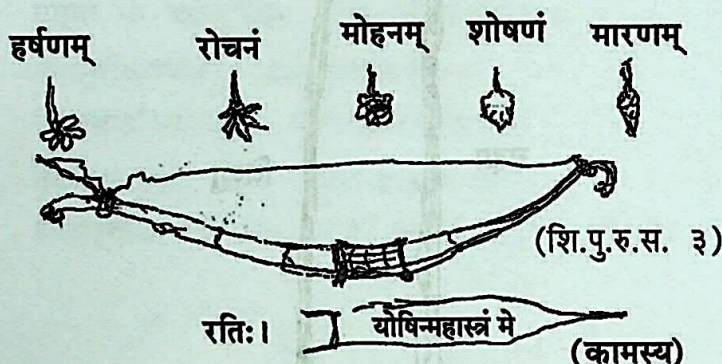 हर्षणम् रोचनं मोहनम् शोषणं मारणम्
(शि.पु.रु.स. ३)
रतिः। योषिन्महास्त्रं मे
(कामस्य)